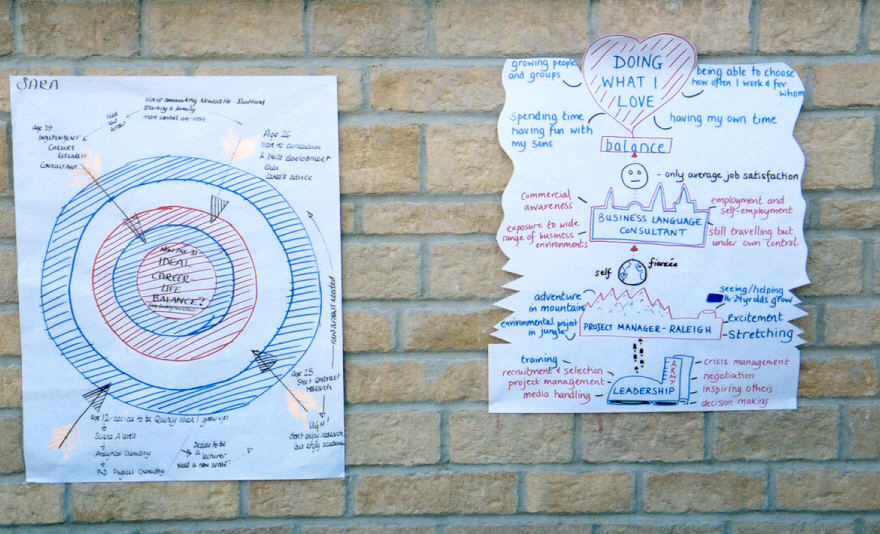 SARA
sick of commuting Newcastle - Scotland
starting a family
more contract one more
need new arrow
Age 29
INDEPENDENT
CAREERS
RESEARCH
CONSULTANT
Age 26
Move to curriculum
& skills development
then
careers advice
NOW AGE 31
IDEAL
CAREER-
LIFE
BALANCE?
new arrows needed
Age 25
Start contract
research
UGH!
don't enjoy research
but enjoy academia
Age 12 - decide to be Quincy when I grow up
Analytical Chemistry
PhD Physical Chemistry
Decide to be
a
lecturer
Need a new arrow
DOING
WHAT I
LOVE
growing people
and groups
being able to choose
how often I work & for
whom
Spending time
having fun with
my sons
having my own time
balance
- only average job satisfaction
Commercial
awareness
employment and
self-employment
BUSINESS LANGUAGE
CONSULTANT
exposure to wide
range of business
environments
still travelling but
under own control
self
fiancée
adventure
in mountains
seeing/helping
grow
environmental project
in jungle
excitement
PROJECT MANAGER - RALEIGH
stretching
training
recruitment & selection
project management
media handling
LEADERSHIP
ARMY
crisis management
negotiation
inspiring others
decision making